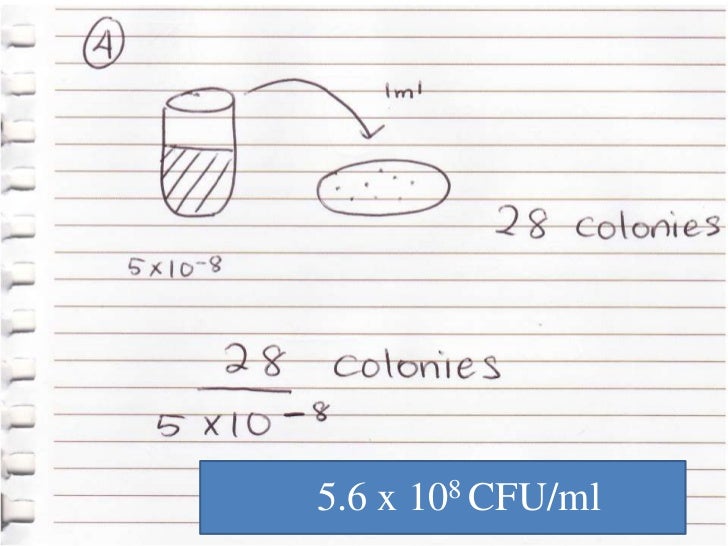 A
1ml
28 colonies
5x10⁻⁸
28 colonies
5 x10⁻⁸
5.6 x 10⁸ CFU/ml